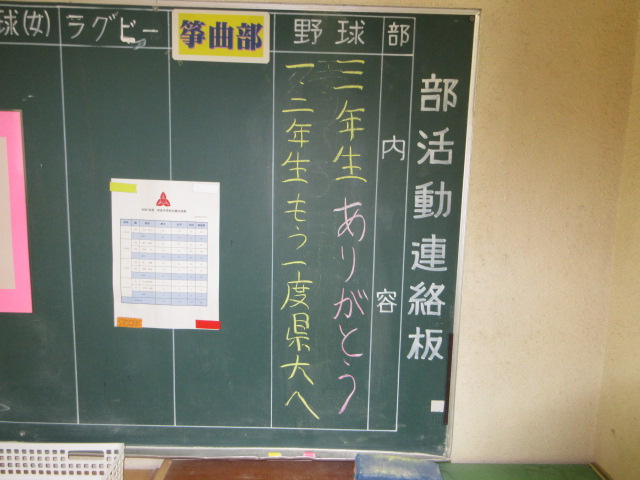 部活動連絡板
部
内容
野球
三年生ありがとう
一・二年生もう一度県大へ
箏曲部
ラグビー
球(女)